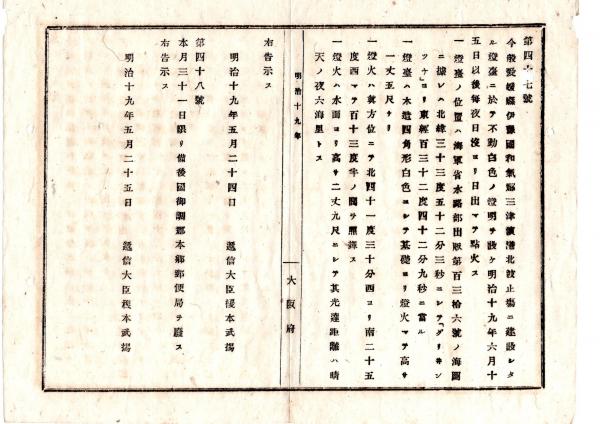 第四十七號
今般愛媛縣伊豫國和氣郡三津濱港北波止場ニ建設シタ
ル燈臺ニ於テ不動白色ノ燈明ヲ設ケ明治十九年六月十
五日以後每夜日沒ヨリ日出マテ點火ス
一燈臺ノ位置ハ海軍省水路部出版第百三拾六號ノ海圖
ニ據レハ北緯三十三度五十二分三秒ニシテ「グリーン
ウヰチ」ヨリ東經百三十二度四十二分九秒ニ當ル
一燈臺ハ木造四角形白色ニシテ基礎ヨリ燈火マテ高サ
一丈五尺ナリ
一燈火ハ眞方位ニテ北四十一度三十分西ヨリ南二十五
度西マテ百十三度半ノ間ヲ照輝ス
一燈火ハ水面ヨリ高サ二丈九尺ニシテ其光達距離ハ晴
天ノ夜六海里トス
明治十九年
大阪府
右告示ス
明治十九年五月二十四日 遞信大臣榎本武揚
第四十八號
本月三十一日限リ備後國御調郡本鄉郵便局ヲ廢ス
右告示ス
明治十九年五月二十五日 遞信大臣榎本武揚